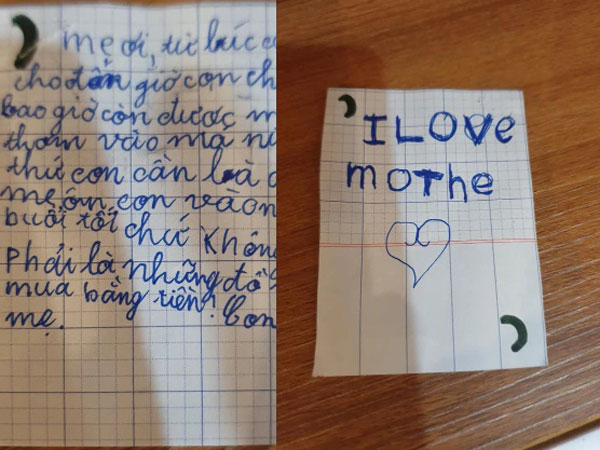 mẹ ơi, từ lúc
cho đến giờ con ch
bao giờ còn được m
thơm vào má
thứ con cần là
mẹ ôm con vào
buổi tối chứ khôn
phải là những đồ
mua bằng tiền! Con
mẹ.
I LOVe
moThe